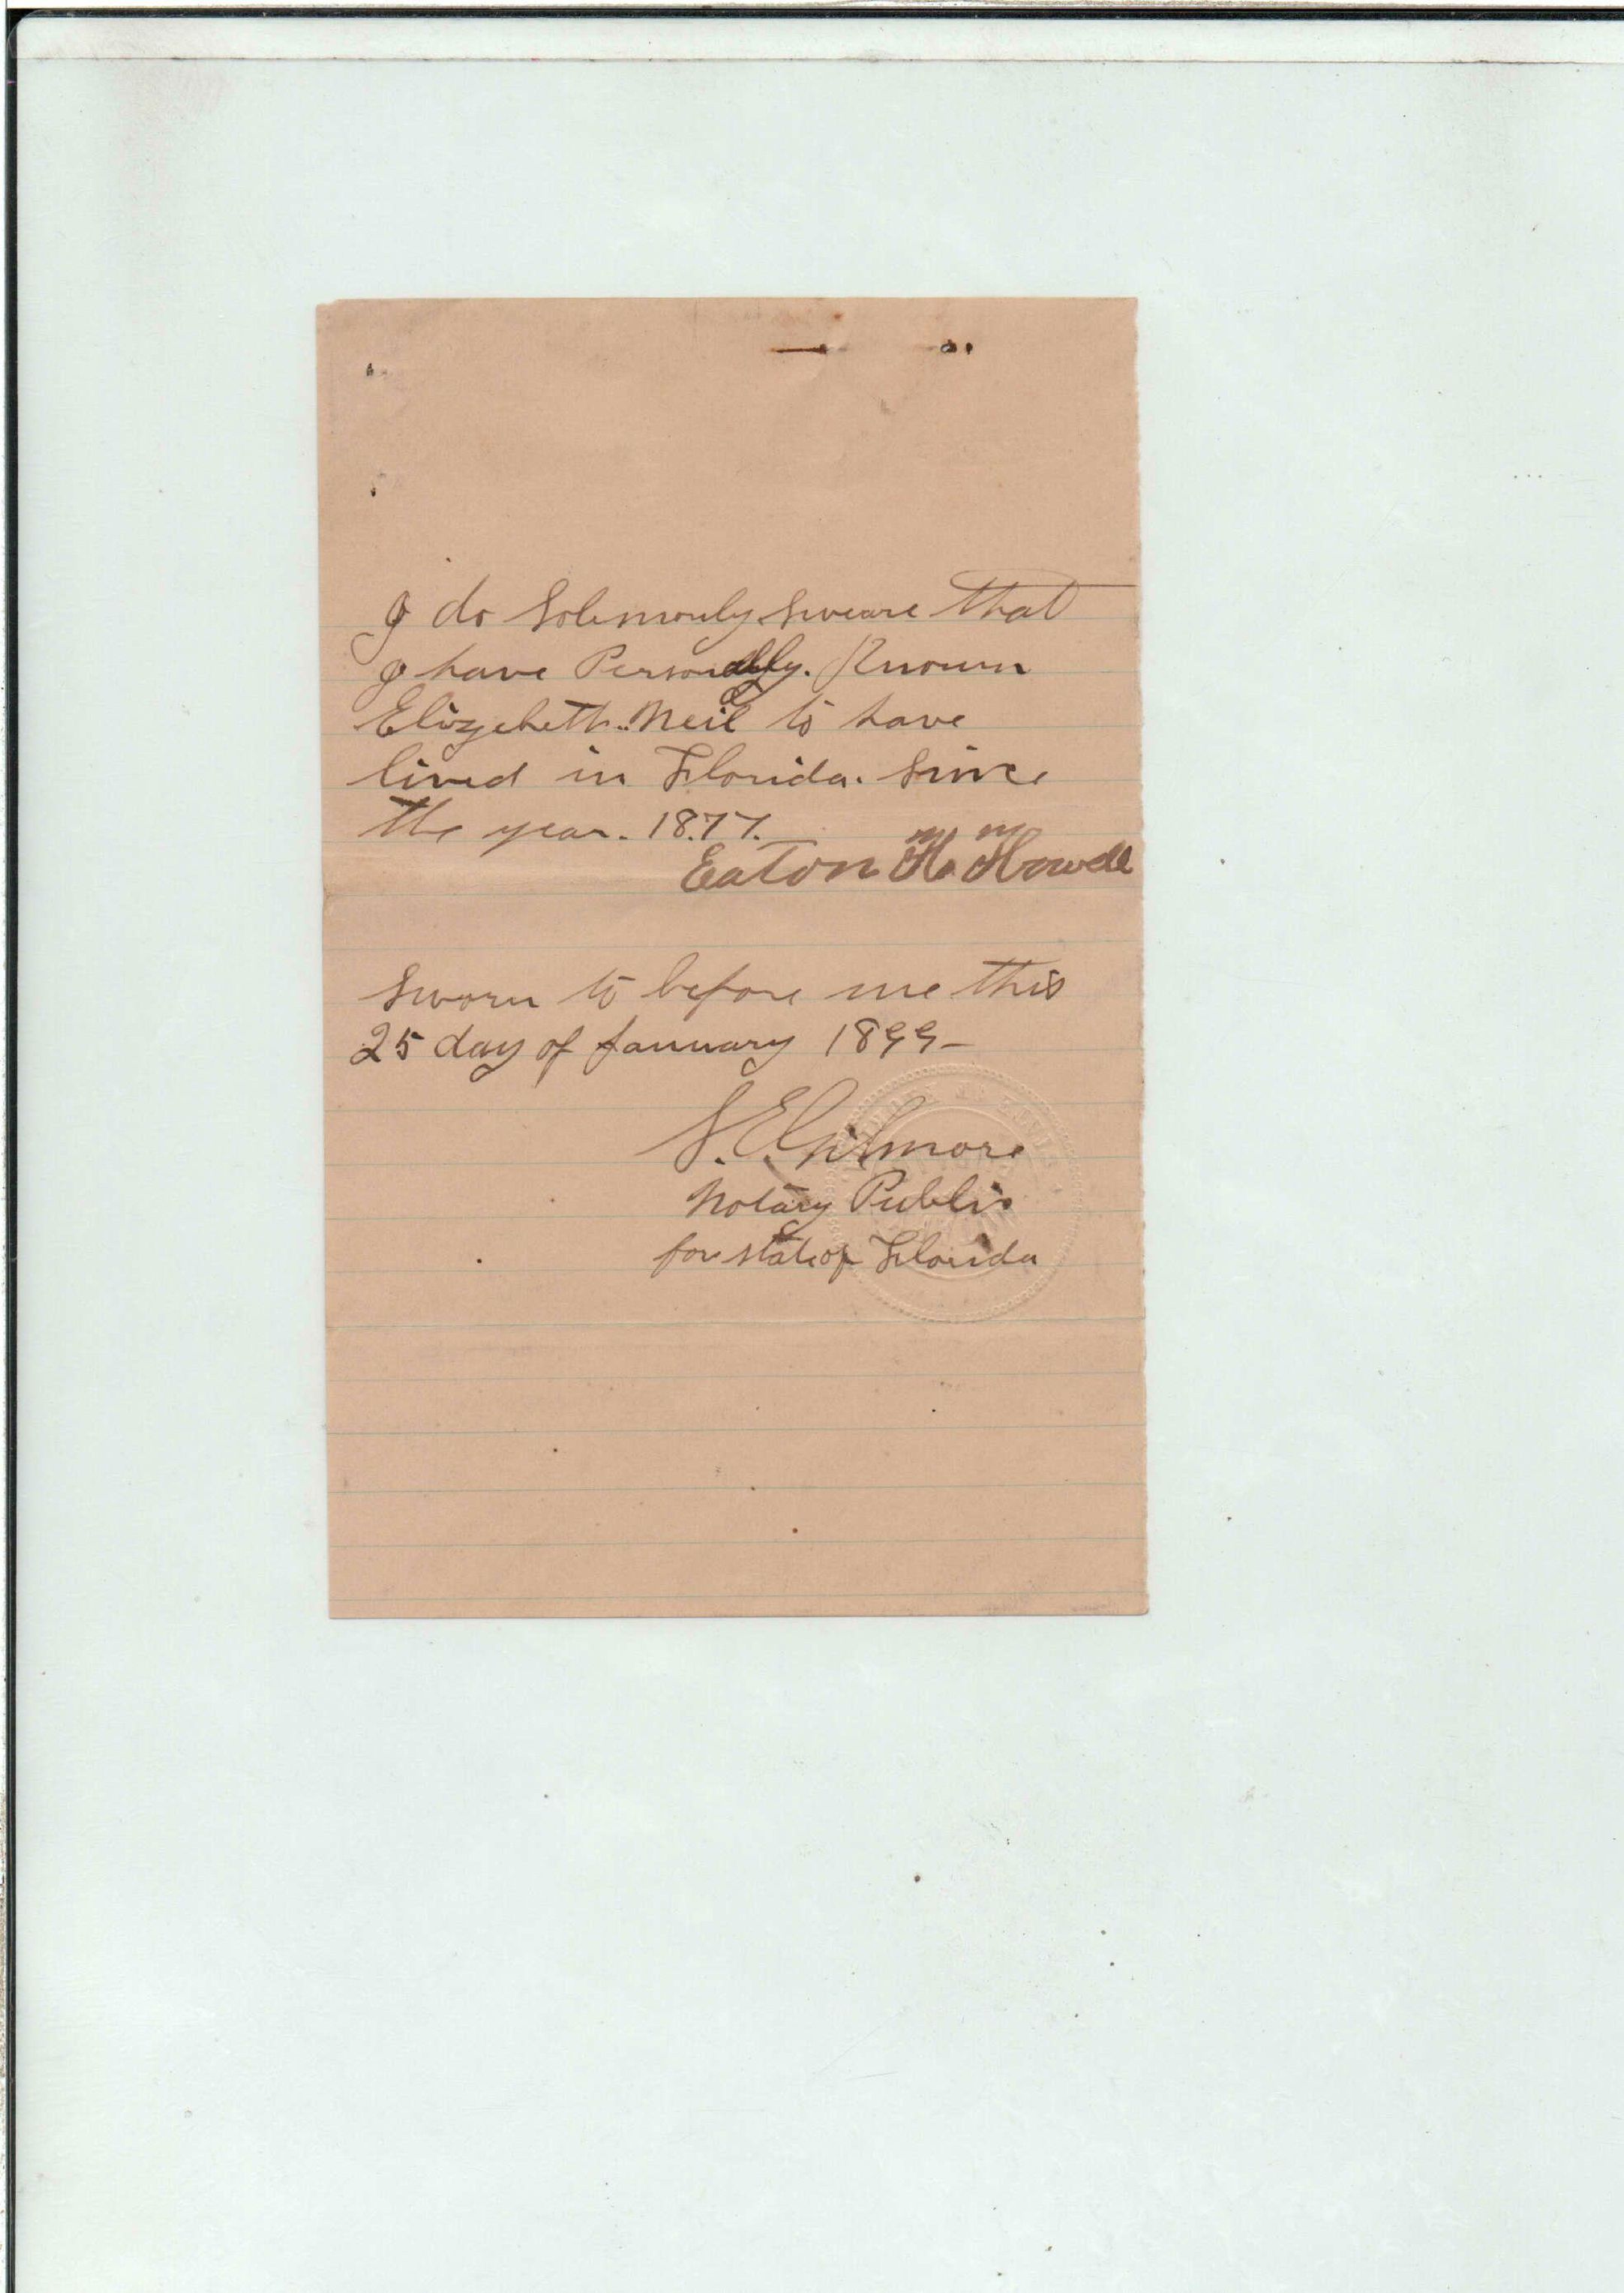 I do Solemnly Sweare that
I have Personally. Known
Elizebeth. Neil to have
lived in Florida. Since
the year. 18.77.
Eaton H. Howell
Sworn to before me this
25 day of January 1899-
S. E. Gilmore
Notary Public
for state of Florida